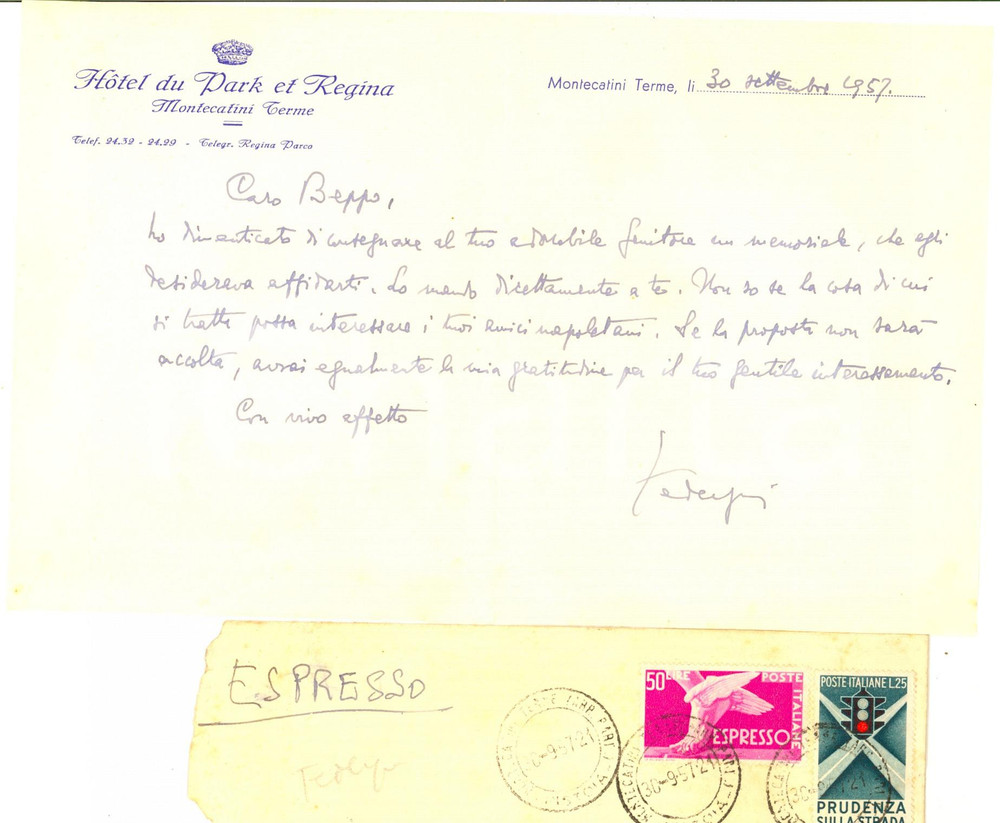 Hôtel du Park et Regina
Montecatini Terme
Telef. 24.32 - 24.29 - Telegr. Regina Parco
Montecatini Terme, li 30 settembre 1957.
Caro Beppo,
ho dimenticato di consegnare al tuo adorabile genitore un memoriale, che egli
desiderava affidarti. Lo mando direttamente a te. Non so se la cosa di cui
si tratta possa interessare i tuoi amici napoletani. Se la proposta non sarà
accolta, avrai egualmente la mia gratitudine per il tuo gentile interessamento.
Con vivo affetto
ESPRESSO
50 LIRE POSTE ITALIANE
ESPRESSO
POSTE ITALIANE L.25
PRUDENZA
SULLA STRADA
30-9-57·21
30-9-57·21